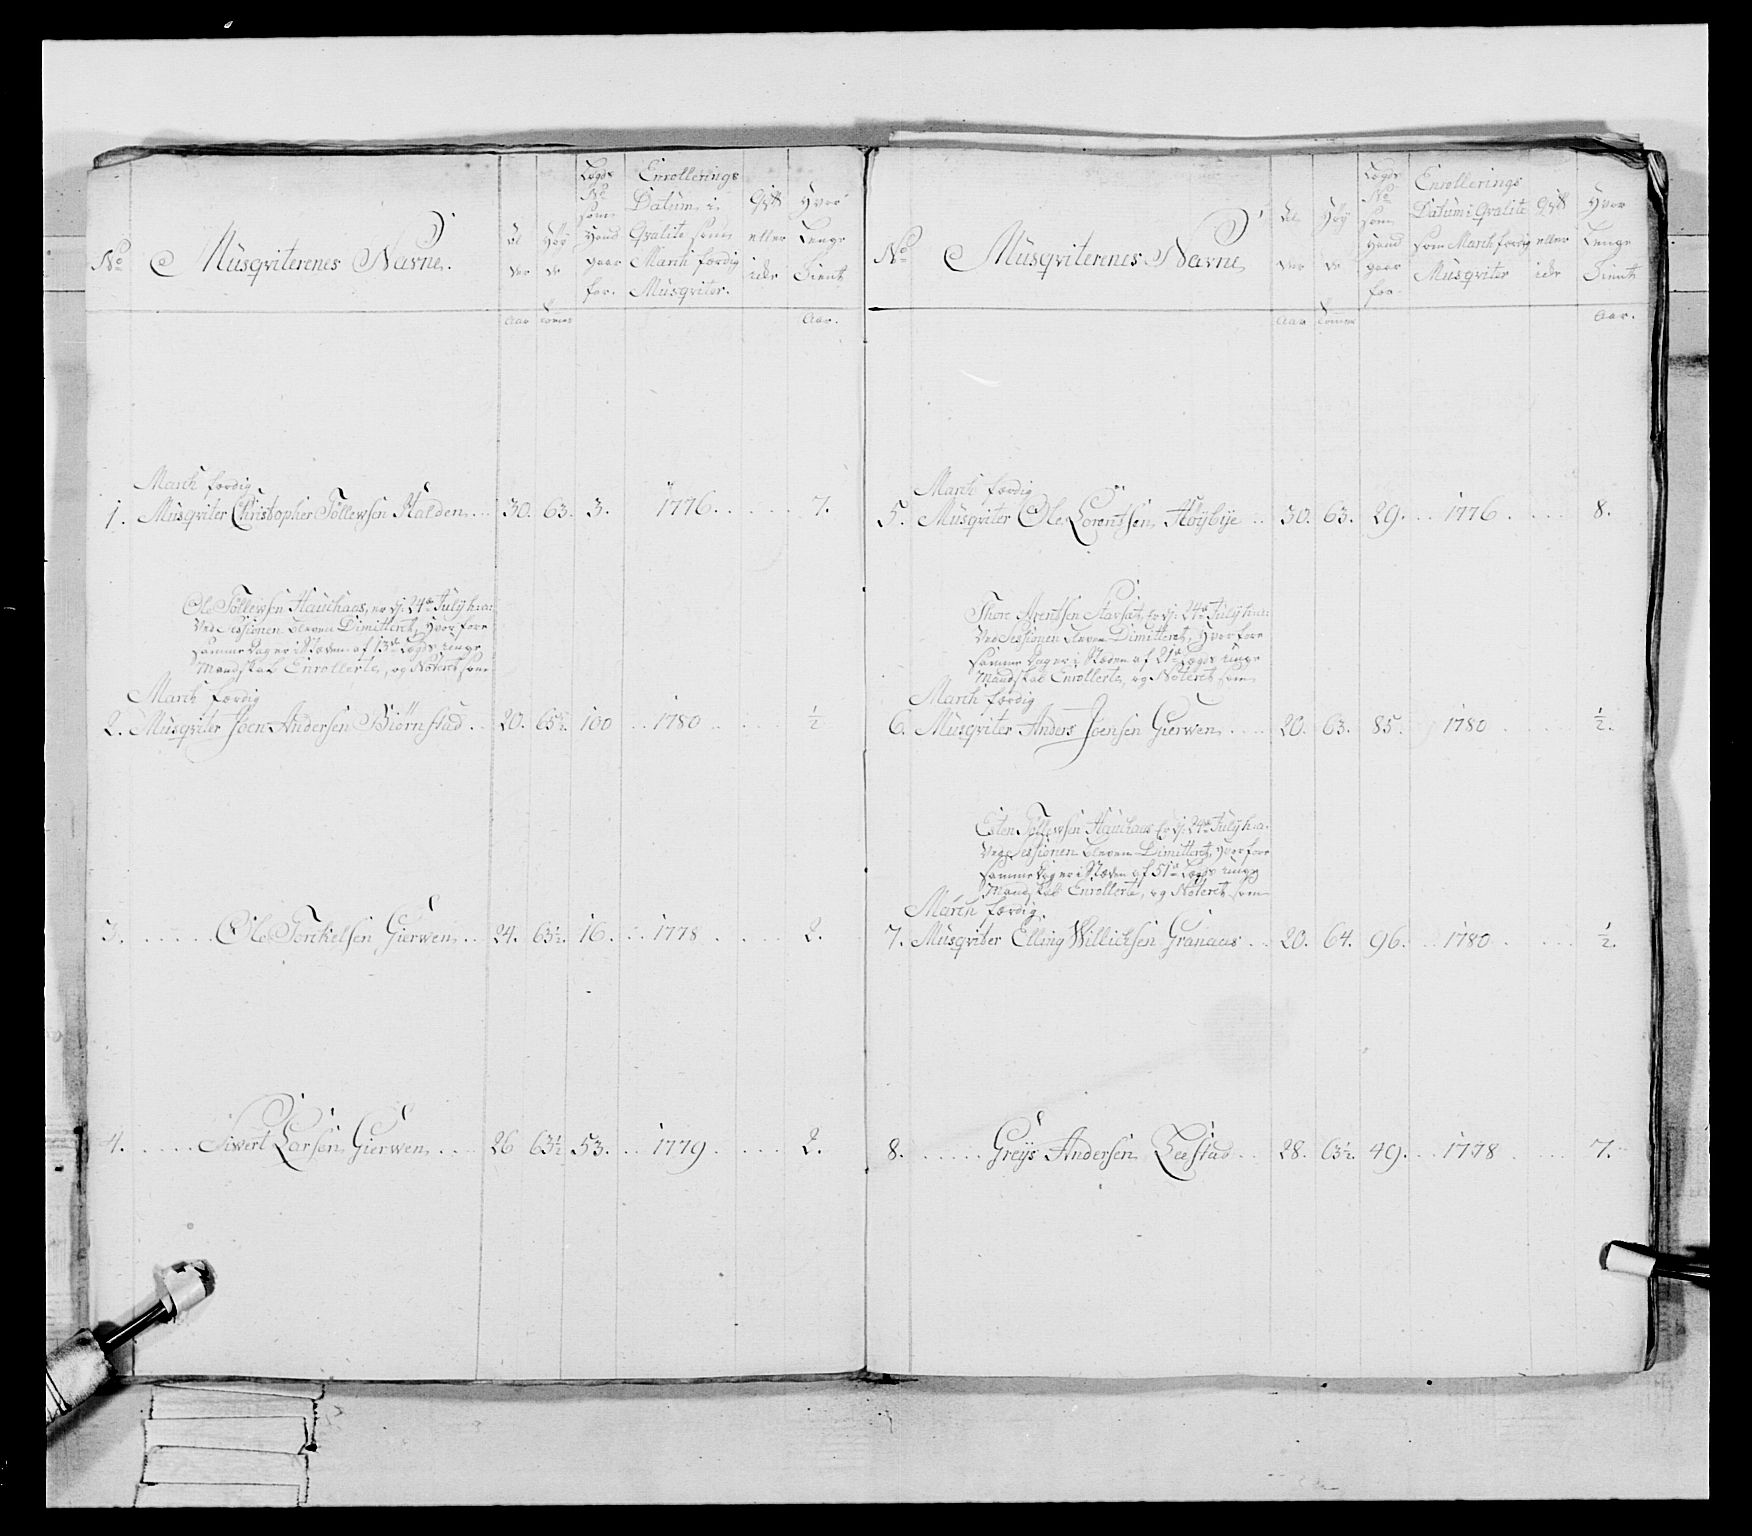 No
Musqviterenes Navne.
Al
der
Høy
de
Lægds
No
som
Hand
staar
for.
Enrollerings
Datum i
Qvalite som
March færdig
Musqviter.
Gift
eller
icke
Hvor
Lenge
Tient
Aar
Tomer
Aar.
March færdig
1. Musqviter Christopher Tollewsen Halden .. 30. 63. 3. 1776. . . . . . 7.
Ole Tollewsen Hauihaas, er dj: 24de July h: a:
Ved Sessionen bleven Dimitteret, hvorfore
samme Dag er i Stæden af 13de Lægds unge
Mandskab Enrollerte, og Noteret som
March færdig
2. Musqviter Joen Andersen Biørnstad . . 20. 65½. 100 .. 1780 .. ½
3. . . . . . Ole Torckelsen Gierwen. .. 24. 63½. 16. .. 1778 . . . . . 2.
4. . . . . . Siwert Larsen Gierwen. . . . 26 63½ 53. . . 1779 . . . . . 2.
No
Musqviterenes Navne
Al
der
Høy
de
Lægds
No
som
Hand
staar
for.
Enrollerings
Datum i Qvalite
som March færdig
Musqviter
Gift
eller
icke
Hvor
Lenge
Tient
Aar
Tommer
Aar.
March færdig
5. Musqviter Ole Lorentsen Høybye .. 30. 63. 29. . . 1776 . . . . . 8.
Thore Arentsen Starsat, Er dj: 24de July h: a:
Ved Sessionen bleven Dimitteret, hvorfore
samme Dag er i Stæden af 21de Lægds unge
Mandskab Enrollerte, og Noteret som
March færdig
6. Musqviter Anders Joensen Gierwen. . . . 20. 63. 85. 1780 . . . . . ½.
Esten Tollewsen Hauihaas Er dj: 24de July h: a:
Ved Sessionen bleven Dimitteret, hvorfore
samme Dag er i Stæden af 51de Lægds unge
Mandskab Enrollerte, og Noteret som
March færdig.
7. Musqviter Elling Willichsen Granaas . . 20. 64. 96. . . 1780 . . . . . ½.
8. . . . . . Greys Andersen Leestad . . 28. 63½. 49. . . 1778 . . . . . 7.